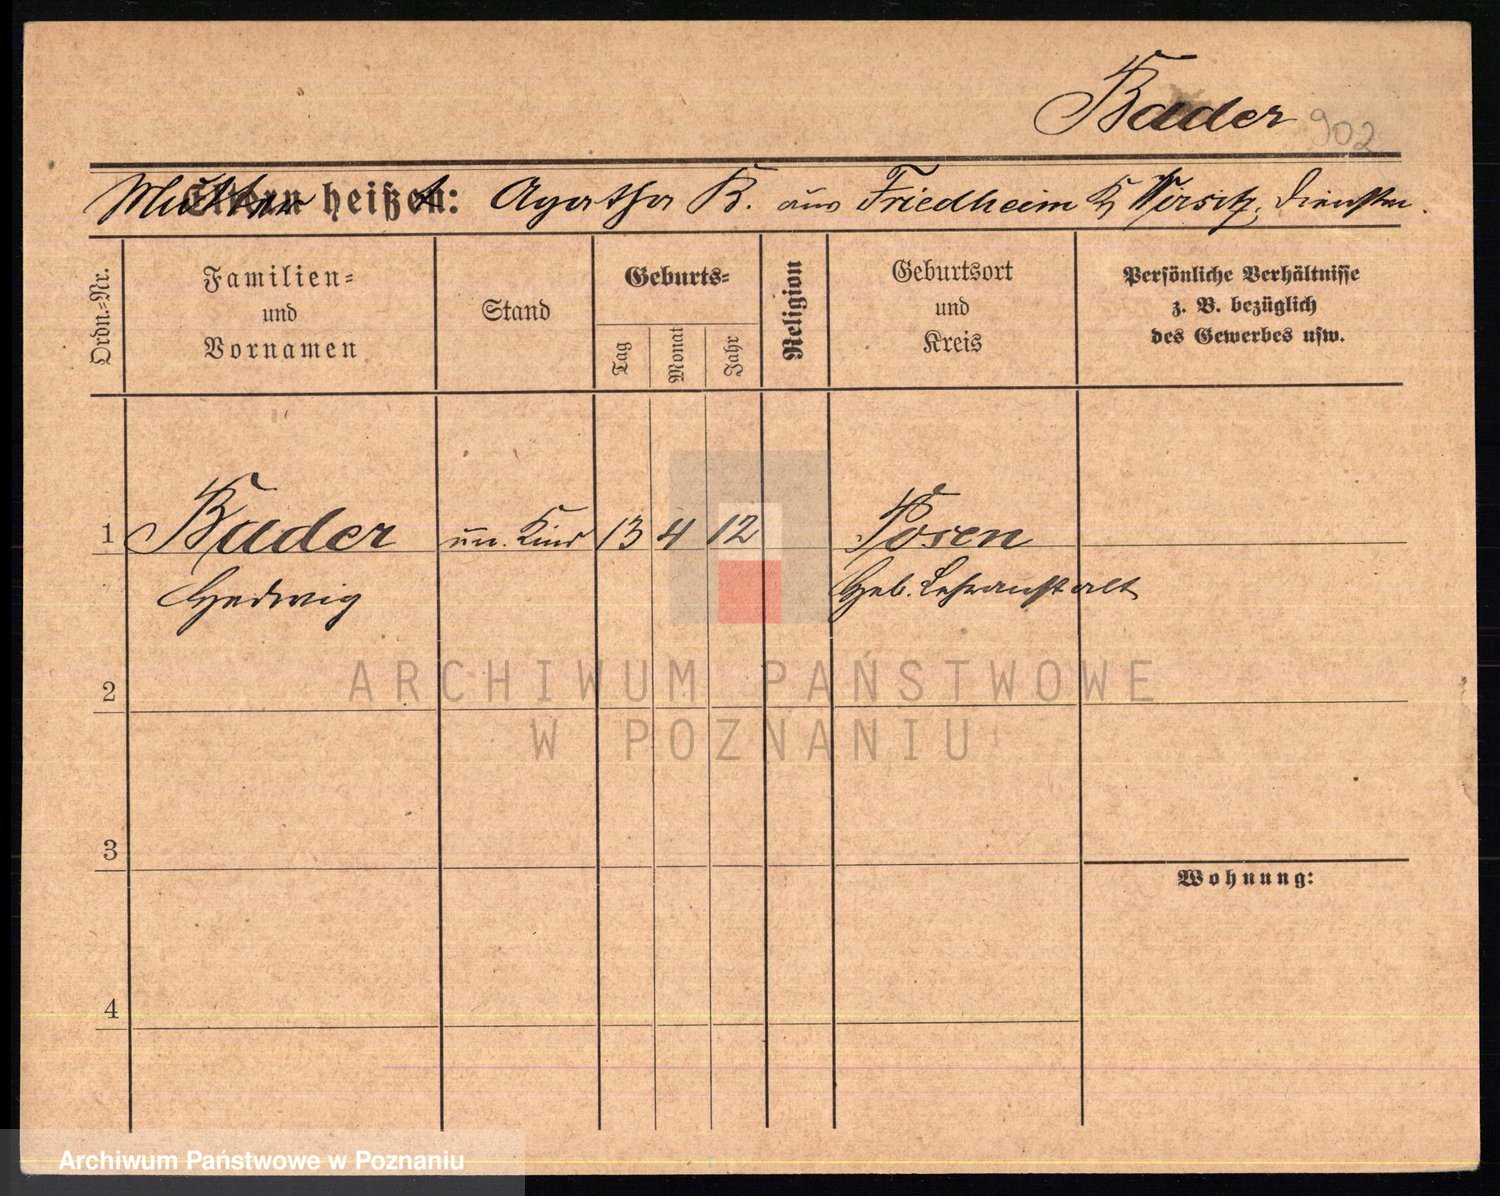 Bader 902
Mutter heißt: Agatha B. aus Friedheim Kr Wirsitz,
Ordn.-Nr.
Familien-
und
Vornamen
Stand
Geburts-
Tag
Monat
Jahr
Religion
Geburtsort
und
Kreis
Persönliche Verhältnisse
z. B. bezüglich
des Gewerbes usw.
1 Bader un. Kind 13 4 12 Posen
Hedwig Heb. Lehranstalt
2
3
4
Wohnung:
ARCHIWUM PAŃSTWOWE
W POZNANIU
Archiwum Państwowe w Poznaniu